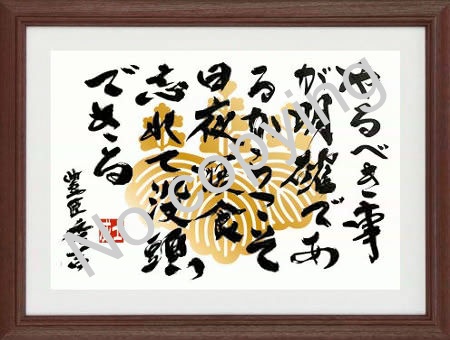 やるべき事
が明確であ
るからこそ
日夜寝食
忘れて没頭
できる
豊臣秀吉
No copying